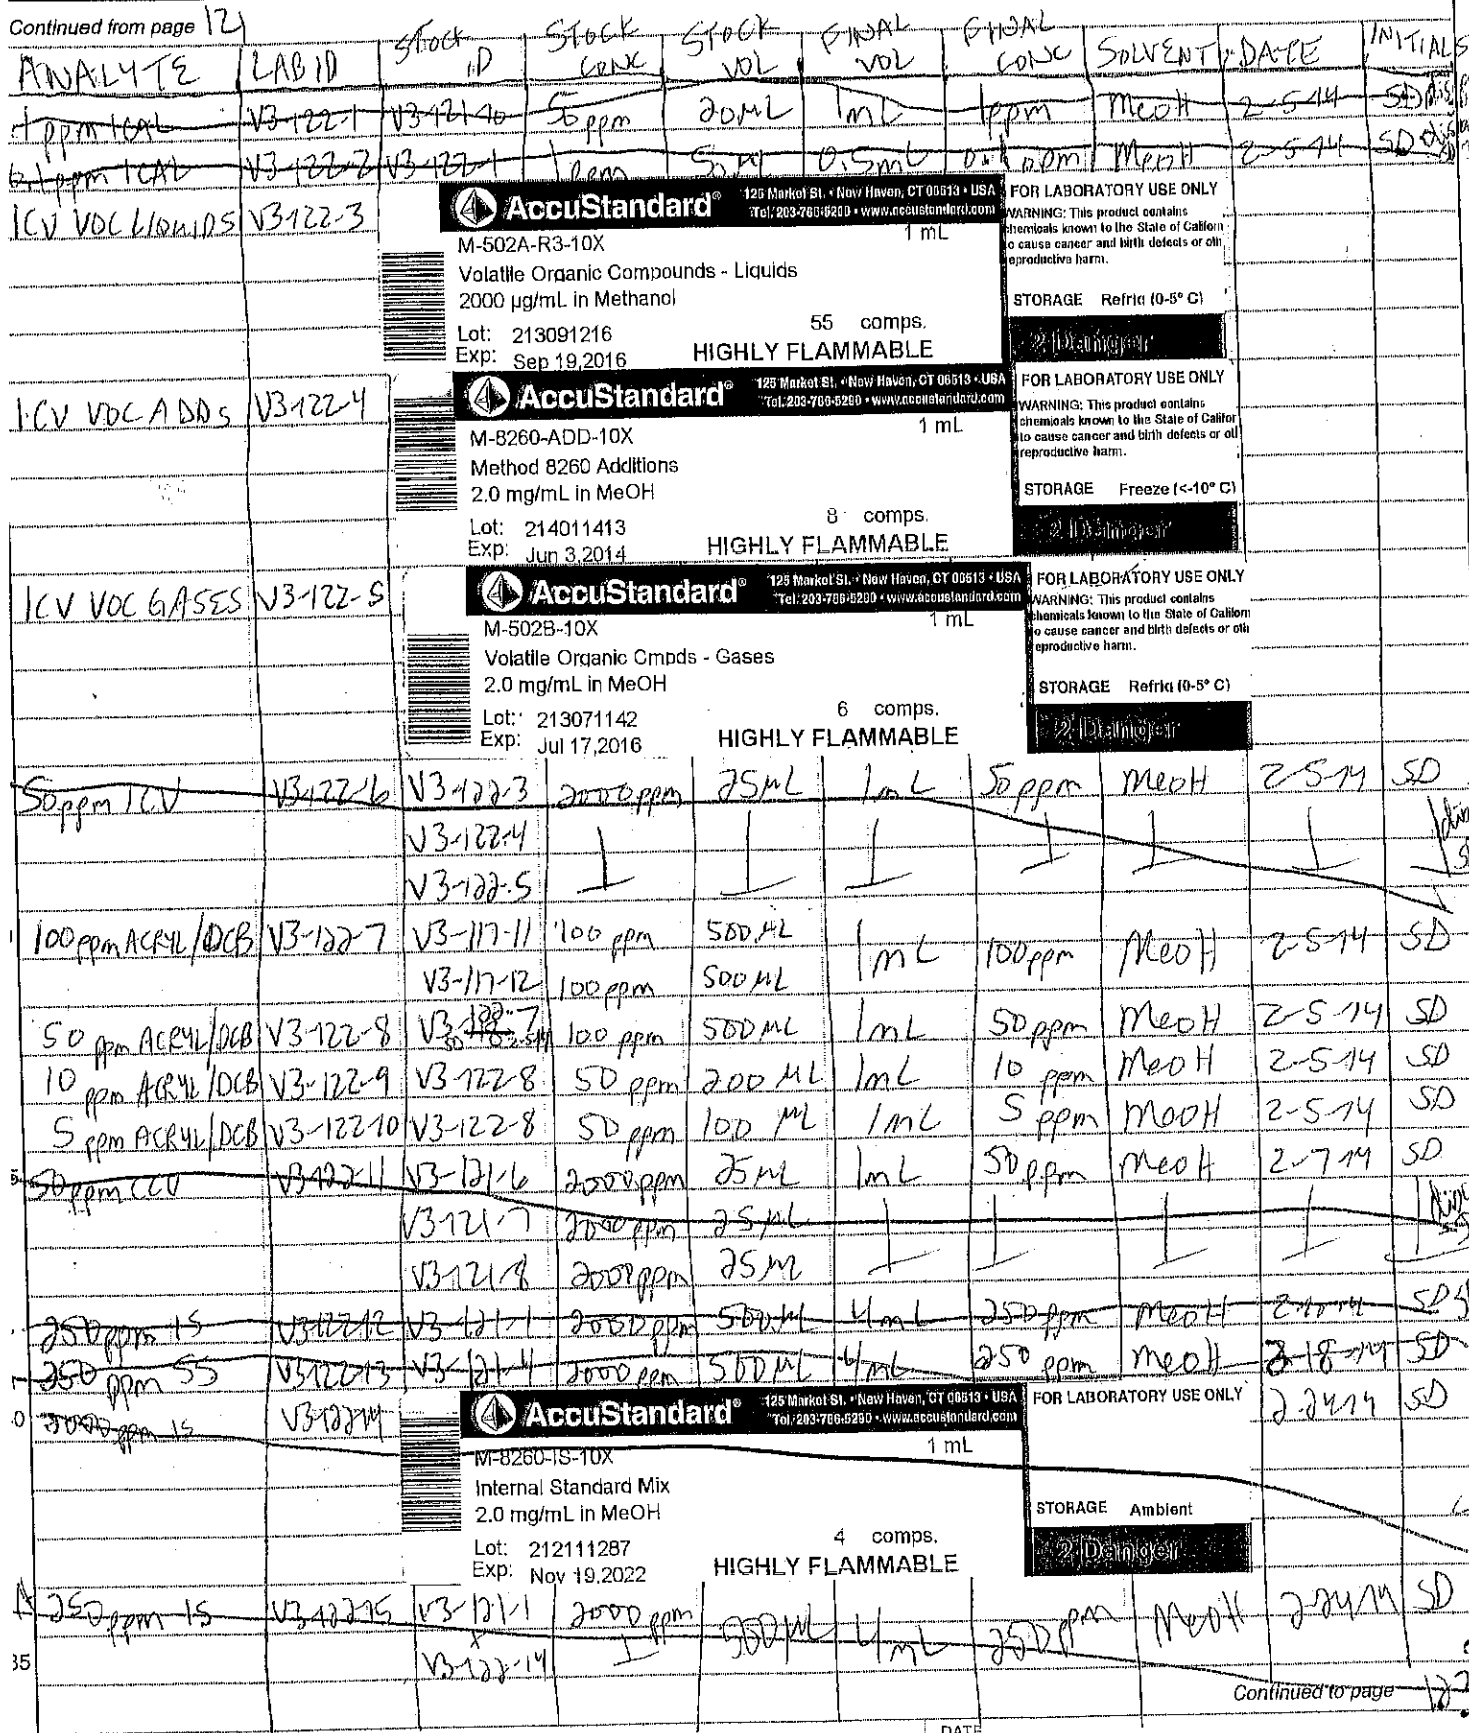 Continued from page 121
ANALYTE LAB ID STOCK ID STOCK CONC STOCK VOL FINAL VOL FINAL CONC SOLVENT DATE INITIALS
1 ppm ICAL V3-122-1 V3-121-10 50 ppm 20 µL 1 mL 1 ppm MeOH 2-5-14 SD
0.1 ppm ICAL V3-122-2 V3-122-1 1 ppm 50 µL 0.5 mL 0.1 ppm MeOH 2-5-14 SD
ICV VOC LIQUIDS V3-122-3
AccuStandard® 125 Market St. • New Haven, CT 06513 • USA
Tel. 203-786-5290 • www.accustandard.com
M-502A-R3-10X 1 mL
Volatile Organic Compounds - Liquids
2000 µg/mL in Methanol
Lot: 213091216 55 comps.
Exp: Sep 19,2016 HIGHLY FLAMMABLE
FOR LABORATORY USE ONLY
WARNING: This product contains
chemicals known to the State of Californ
o cause cancer and birth defects or oth
eproductive harm.
STORAGE Refrig (0-5° C)
2 Danger
ICV VOC ADDs V3-122-4
AccuStandard® 125 Market St. • New Haven, CT 06513 • USA
Tel. 203-786-5290 • www.accustandard.com
M-8260-ADD-10X 1 mL
Method 8260 Additions
2.0 mg/mL in MeOH
Lot: 214011413 8 comps.
Exp: Jun 3,2014 HIGHLY FLAMMABLE
FOR LABORATORY USE ONLY
WARNING: This product contains
chemicals known to the State of Califor
to cause cancer and birth defects or oth
reproductive harm.
STORAGE Freeze (<-10° C)
2 Danger
ICV VOC GASES V3-122-5
AccuStandard® 125 Market St. • New Haven, CT 06513 • USA
Tel. 203-786-5290 • www.accustandard.com
M-502B-10X 1 mL
Volatile Organic Cmpds - Gases
2.0 mg/mL in MeOH
Lot: 213071142 6 comps.
Exp: Jul 17,2016 HIGHLY FLAMMABLE
FOR LABORATORY USE ONLY
WARNING: This product contains
chemicals known to the State of Californ
o cause cancer and birth defects or oth
eproductive harm.
STORAGE Refrig (0-5° C)
2 Danger
50 ppm ICV V3-122-6 V3-122-3 2000 ppm 25 µL 1 mL 50 ppm MeOH 2-5-14 SD
V3-122-4
V3-122-5
100 ppm ACRYL/DCB V3-122-7 V3-117-11 100 ppm 500 µL 1 mL 100 ppm MeOH 2-5-14 SD
V3-117-12 100 ppm 500 µL
50 ppm ACRYL/DCB V3-122-8 V3-122-7 100 ppm 500 µL 1 mL 50 ppm MeOH 2-5-14 SD
10 ppm ACRYL/DCB V3-122-9 V3-122-8 50 ppm 200 µL 1 mL 10 ppm MeOH 2-5-14 SD
5 ppm ACRYL/DCB V3-122-10 V3-122-8 50 ppm 100 µL 1 mL 5 ppm MeOH 2-5-14 SD
50 ppm CCV V3-122-11 V3-121-6 2000 ppm 25 µL 1 mL 50 ppm MeOH 2-7-14 SD
V3-121-7 2000 ppm 25 µL
V3-121-8 2000 ppm 25 µL
250 ppm IS V3-122-12 V3-121-1 2000 ppm 500 µL 4 mL 250 ppm MeOH SD
250 ppm SS V3-122-13 V3-121-4 2000 ppm 500 µL 4 mL 250 ppm MeOH 2-18-14 SD
2000 ppm IS V3-122-14 2-24-14 SD
AccuStandard® 125 Market St. • New Haven, CT 06513 • USA
Tel. 203-786-5290 • www.accustandard.com
M-8260-IS-10X 1 mL
Internal Standard Mix
2.0 mg/mL in MeOH
Lot: 212111287 4 comps.
Exp: Nov 19,2022 HIGHLY FLAMMABLE
FOR LABORATORY USE ONLY
STORAGE Ambient
2 Danger
250 ppm IS V3-122-15 V3-121-1 2000 ppm 500 µL 4 mL 250 ppm MeOH 2-24-14 SD
V3-122-14
35
Continued to page
DATE